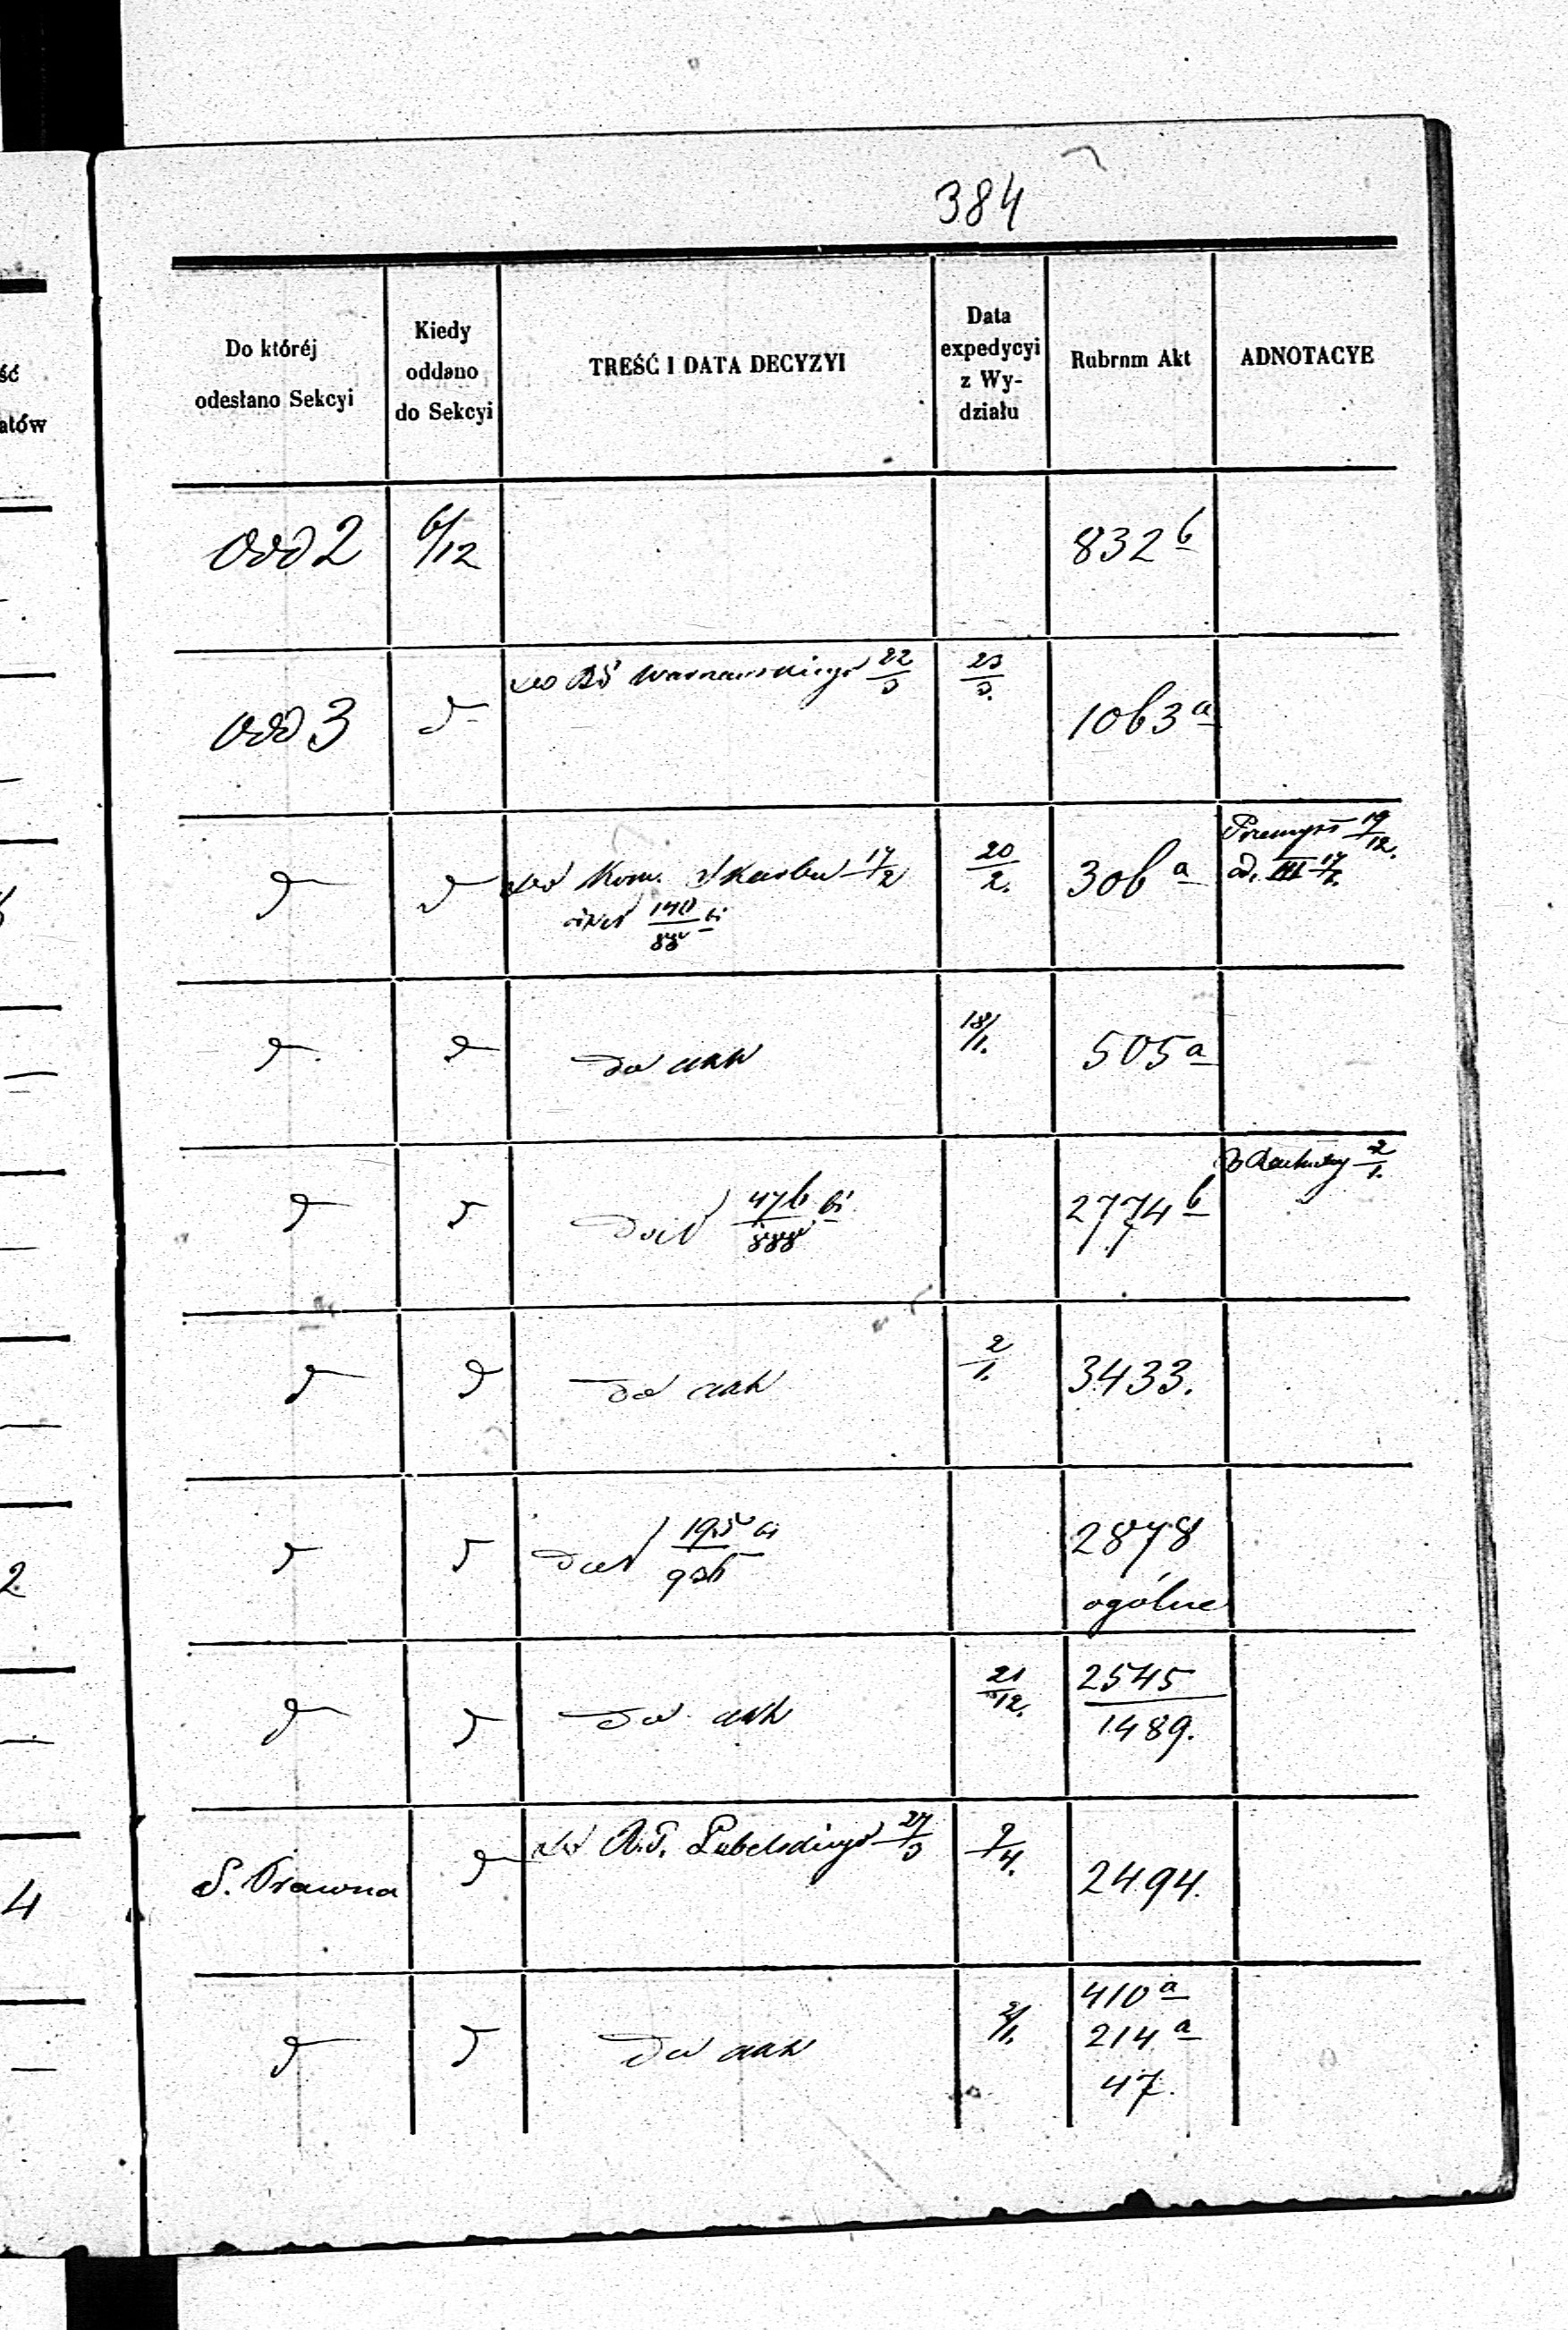 384
Do któréj
odesłano Sekcyi
Kiedy
oddano
do Sekcyi
TREŚĆ I DATA DECYZYI
Data
expedycyi
z Wy-
działu
Rubrnm Akt
ADNOTACYE
ść
atów
Odd 2 6/12 832 b
Odd 3 d Warszawskiego 22/3 23/3. 1063 a
d d do Kom. Skarbu 17/2 20/2. 306 a Przemysł 19/12.
140/88 od. III 17/1.
d d do akt 18/1. 505 a
d d 476/888 2774 b 2/1.
d d do akt 2/1. 3433.
d d 195 2878
ogólne
d d do akt 21/12. 2545/1489.
S. Prawna d do R.G. Lubelskiego 27/3 2/4. 2494.
d d do akt 2/1. 410 a
214 a
47.
2
4